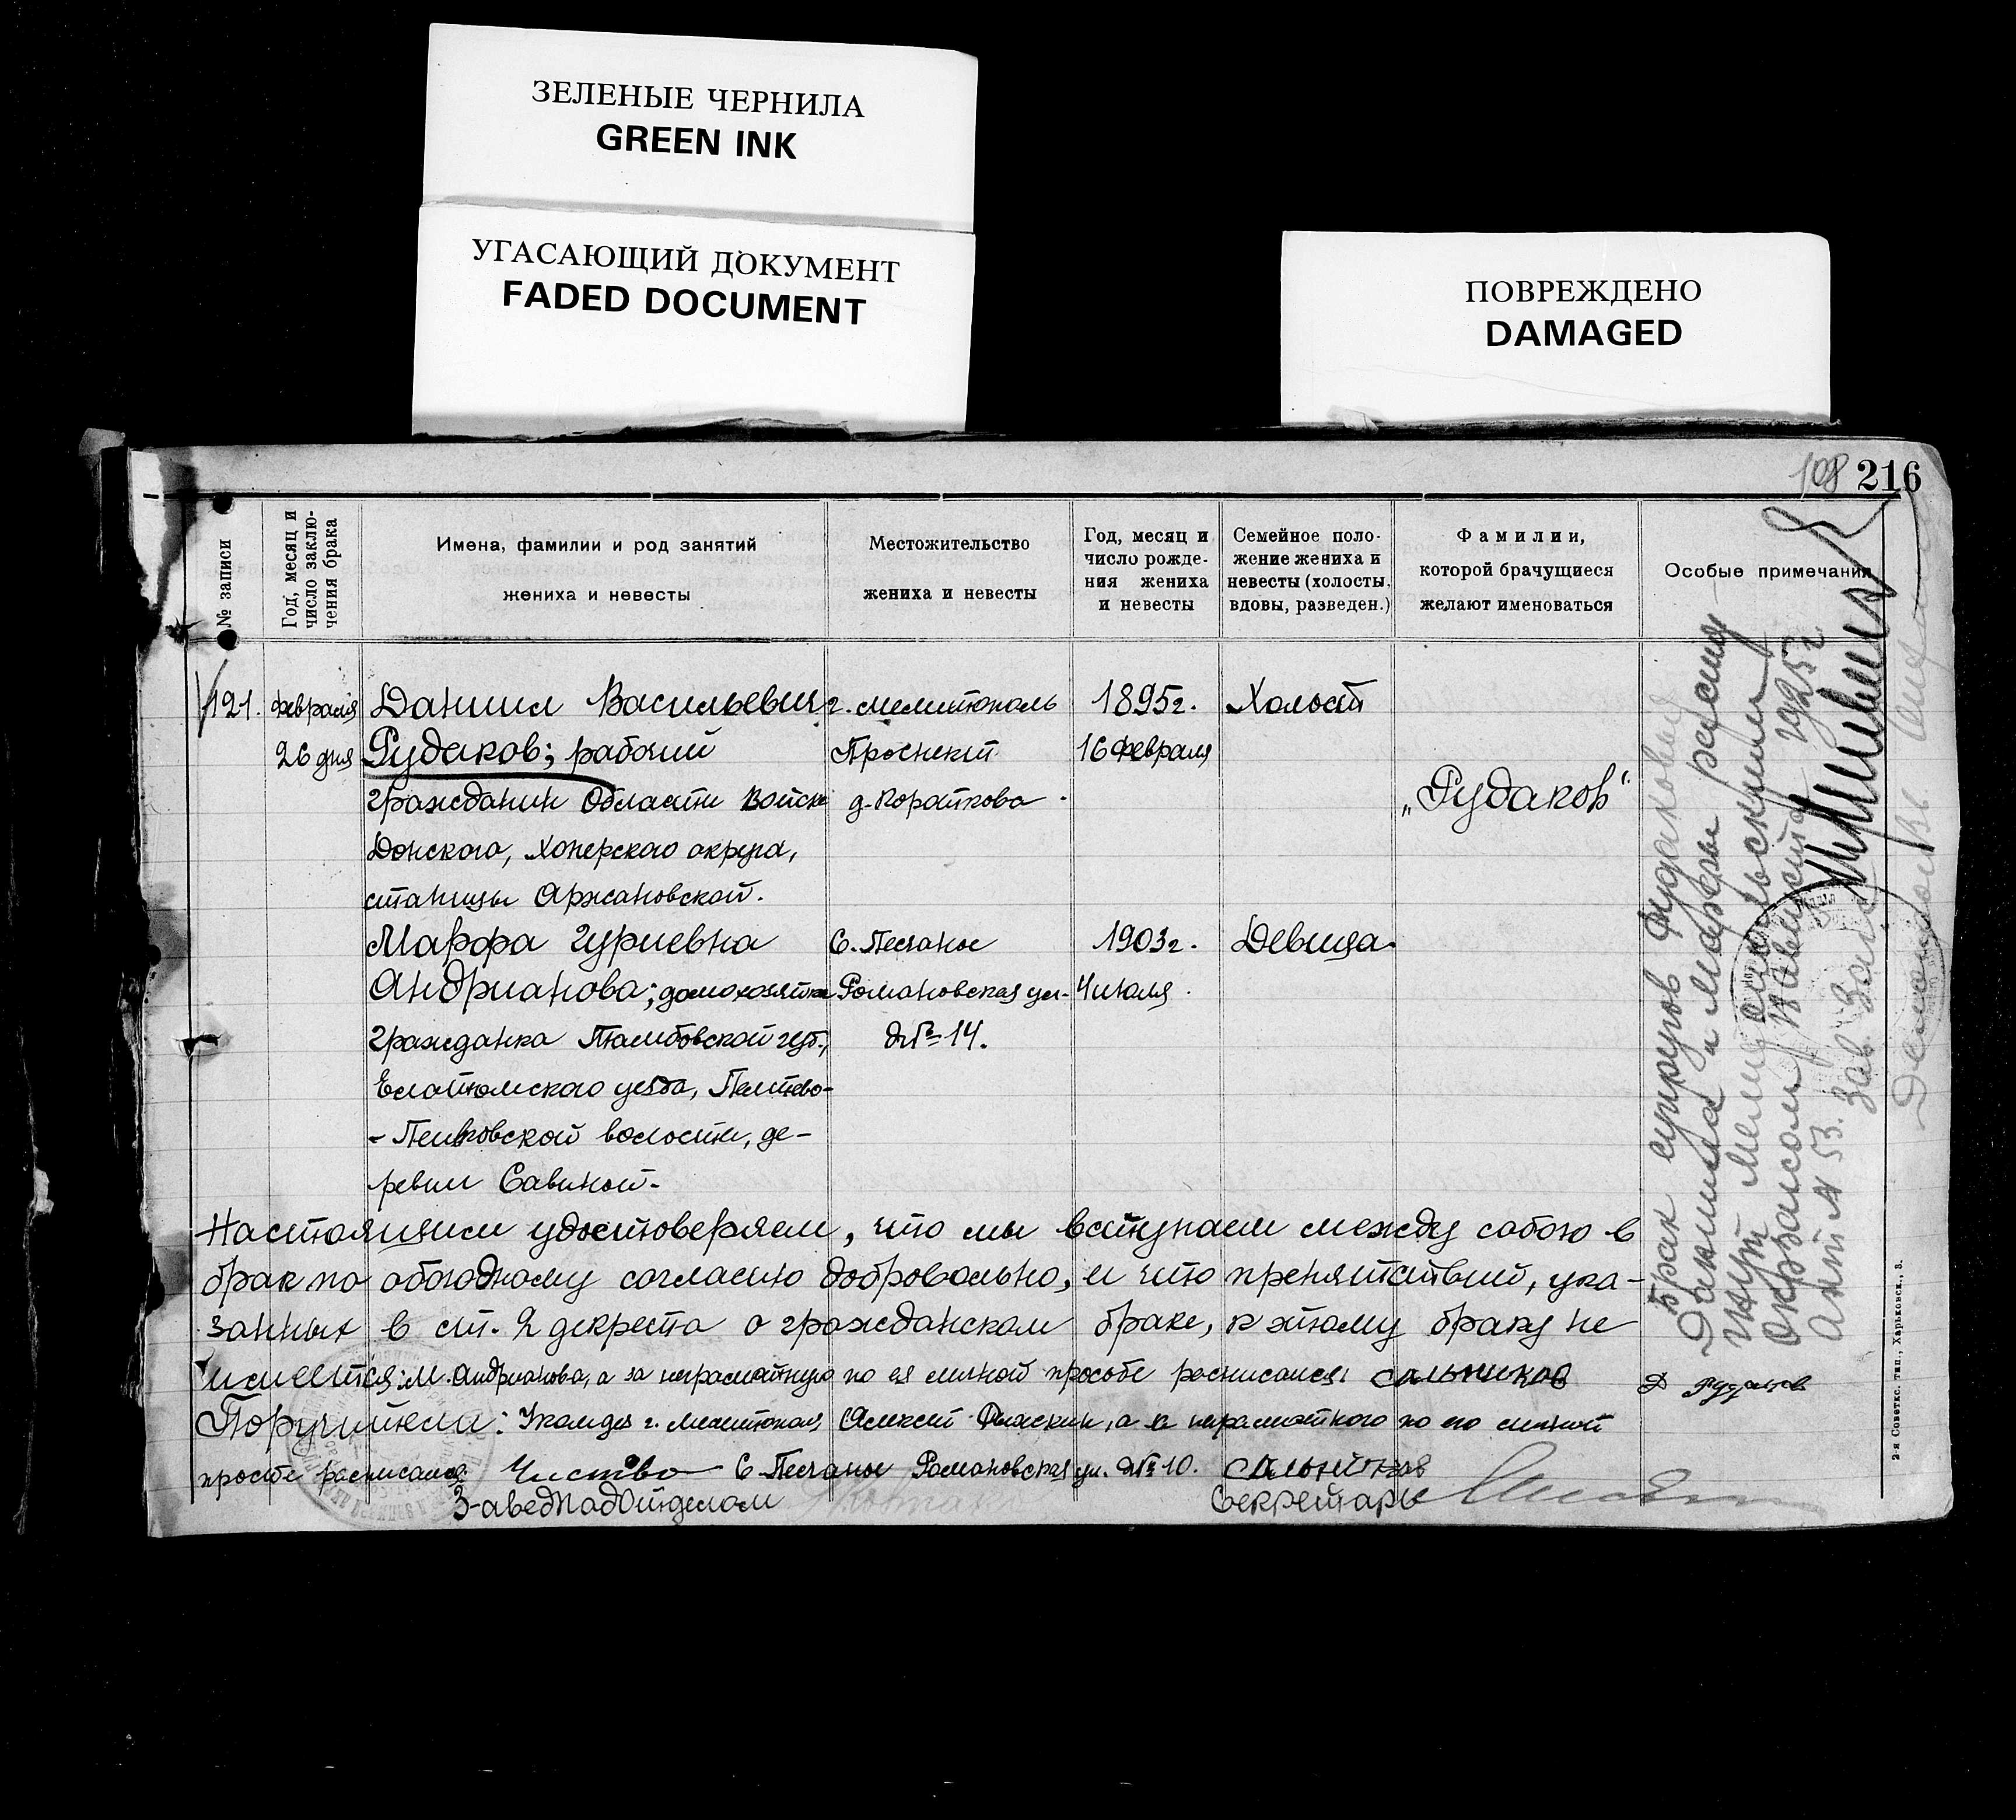 ЗЕЛЕНЫЕ ЧЕРНИЛА
GREEN INK
УГАСАЮЩИЙ ДОКУМЕНТ
FADED DOCUMENT
ПОВРЕЖДЕНО
DAMAGED
108 216
№ записи
Год, месяц и
число заклю-
чения брака
Имена, фамилии и род занятий
жениха и невесты
Местожительство
жениха и невесты
Год, месяц и
число рожде-
ния жениха
и невесты
Семейное поло-
жение жениха и
невесты (холосты,
вдовы, разведен.)
Фамилии,
которой брачущиеся
желают именоваться
Особые примечания
121.
Февраля
26 дня
Даниил Васильевич
Рудаков; рабочий
гражданин Области Войска
Донского, Хоперского округа,
станицы Аржановской.
г. Мелитополь
Проспект
д. Короткова
1895г.
16 февраля
Холост
„Рудаков“
Марфа Гуриевна
Андрианова; домохозяйка
гражданка Тамбовской губ.,
Елатомского уезда,
волости, де-
ревни Савиной.
С. Песчаное
Романовская ул.
д № 14.
1903г.
4 июля
Девица.
Настоящим удостоверяем, что мы вступаем между собою в
брак по обоюдному согласию добровольно, и что препятствий, ука-
занных в ст. 2 декрета о гражданском браке, к этому браку не
имеется: М. Андрианова, а за неграмотную по ея личной прособе росписался Сальников
Поручители: г. Мелитополя, Алексей а неграмотного по его личной
прособе росписался С. Песчаное Романовская ул. д № 10. Сальников
Завед подотделом
Секретарь
Брак супругов Рудаковых
Даниила и Марфы расторг
нут Мелитопольским
Окрзагсом 1925 г
акт № 53.
Зав. Загс
Д Рудаков
2-я Советск. тип., Харьковск., 3.